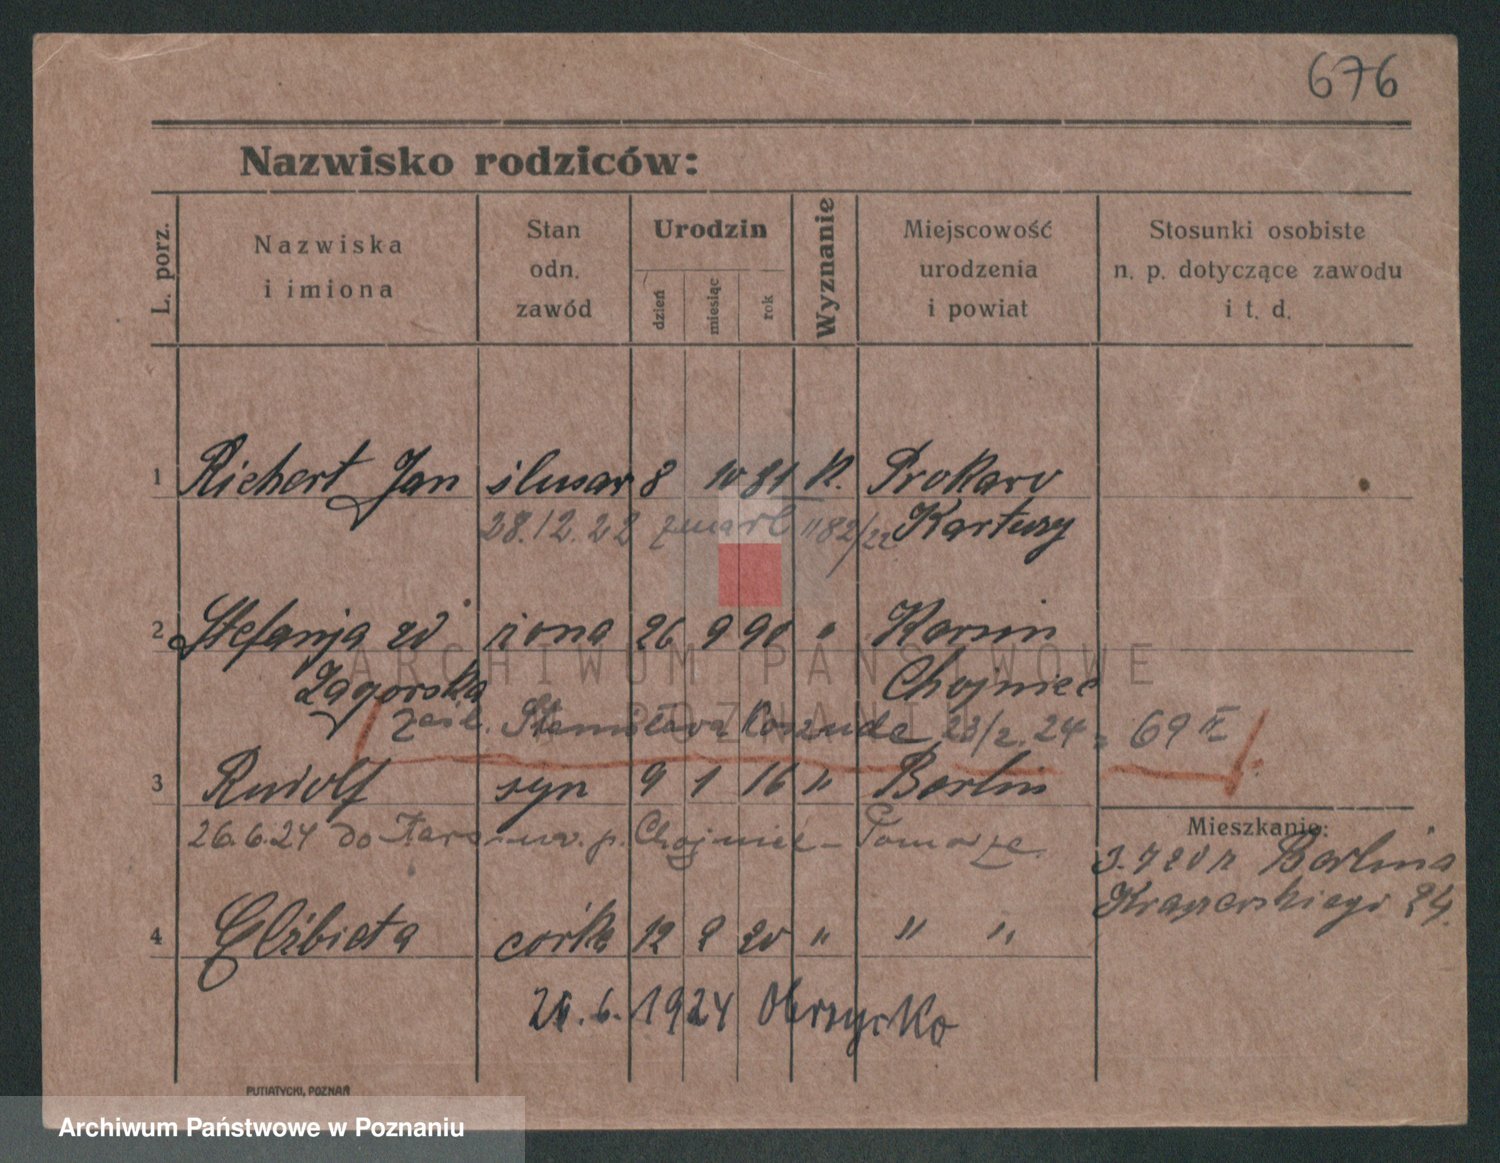 676
Nazwisko rodziców:
L. porz.
Nazwiska
i imiona
Stan
odn.
zawód
Urodzin
dzień
miesiąc
rok
Wyznanie
Miejscowość
urodzenia
i powiat
Stosunki osobiste
n. p. dotyczące zawodu
i t. d.
1 Richert Jan ślusar 8 10 81 K. Prokaro
28.12.22 zmarł 1182/22 Kartuzy
2 Stefanja żona 26 9 90 " Karsin
Zagorska Chojnice
zaśl. Stanisława 23/2. 24 69
3 Rudolf syn 9 1 16 " Berlin
26.6.24 do p. Chojnice - Pomorze
Mieszkanie:
Berlina
24.
4 Elżbieta córka 12 2 20 " " "
26.6.1924 Obrzycko
PUTIATYCKI, POZNAŃ
ARCHIWUM PAŃSTWOWE
W POZNANIU
Archiwum Państwowe w Poznaniu